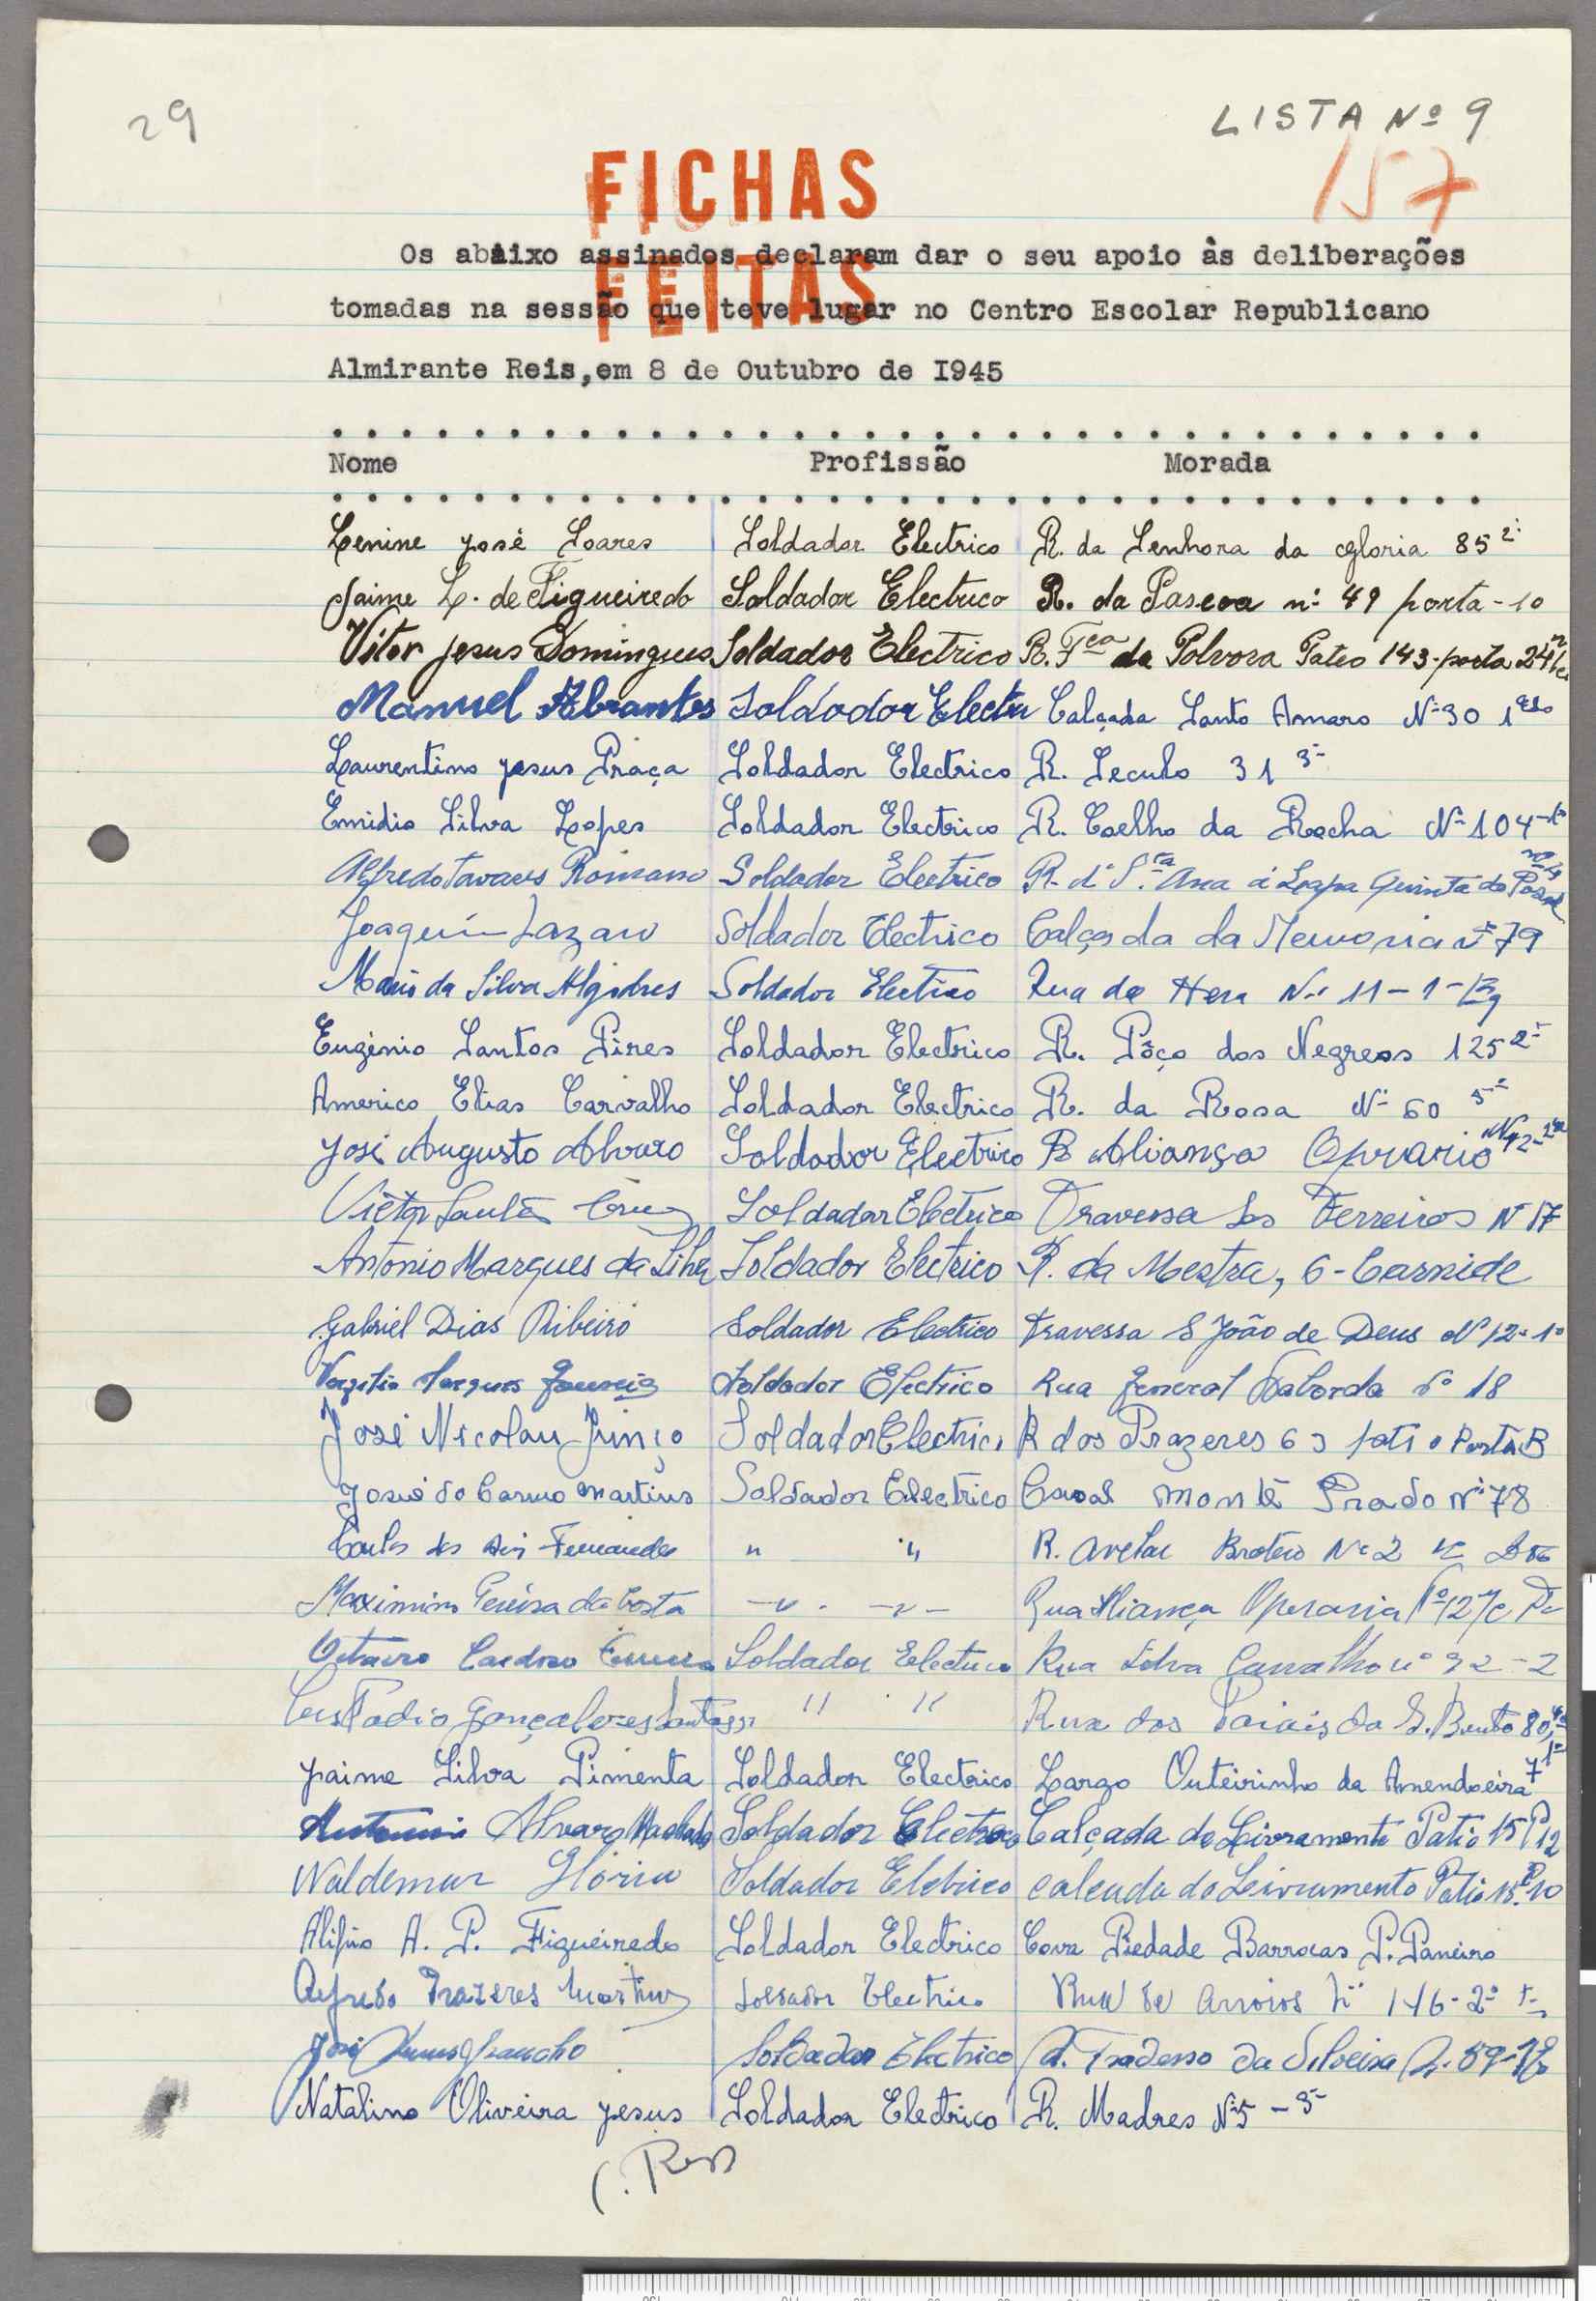 29
LISTA Nº 9
157
FICHAS
FEITAS
Os abaixo assinados declaram dar o seu apoio às deliberações
tomadas na sessão que teve lugar no Centro Escolar Republicano
Almirante Reis, em 8 de Outubro de I945
Nome Profissão Morada
Lenine José Soares Soldador Electrico R. da Senhora da Gloria 85 2º
Jaime L. de Figueiredo Soldador Electrico R. da Pascoa nº 49 porta-10
Vitor Jesus Domingues Soldador Electrico R. Fca da Polvora Pateo 143-porta 24
Manuel Abrantes Soldador Electri Calçada Santo Amaro Nº 30 1º
Laurentino Jesus Praça Soldador Electrico R. Seculo 31 3º
Emidio Silva Lopes Soldador Electrico R. Coelho da Rocha Nº 104
Alfredo Tavares Romano Soldador Electrico R. de Sta Ana á Lapa Quinta do
Joaquim Lazaro Soldador Electrico Calçada da Memoria nº 79
Mario da Silva Algodres Soldador Electrico Rua da Hera Nº 11-1-
Eugénio Santos Pires Soldador Electrico R. Pôço dos Negros 125 2º
Americo Elias Carvalho Soldador Electrico R. da Rosa Nº 60 5º
José Augusto Alvaro Soldador Electrico R Aliança Operario Nº 12
Victor Santos Cruz Soldador Electrico Travessa dos Ferreiros Nº 17
Antonio Marques da Silva Soldador Electrico R. da Mestra, 6-Carnide
Gabriel Dias Ribeiro Soldador Electrico Travessa S João de Deus Nº 12-1º
Vergilio Marques Gouveia Soldador Electrico Rua General Taborda nº 18
José Nicolau Junço Soldador Electric. R dos Prazeres 63 patio Porta B
Josué do Carmo Martins Soldador Electrico Casal Monte Prado nº 78
Carlos dos Reis Fernandes " " R. Avelar Brotero Nº 2 r/c Dto
Maximino Pereira da Costa -v- -v- Rua Aliança Operaria Nº 12 r/c
Octavio Cardoso Ferreira Soldador Electrico Rua Silva Carvalho nº 92-2
Custodio Gonçalves Santos " " Rua dos Poiais da S. Bento 80,
Jaime Silva Pimenta Soldador Electrico Largo Outeirinho da Amendoeira 7 1º
Antonio Alvaro Machado Soldador Electrico Calçada do Livramento Patio 15 P 12
Waldemar Glória Soldador Eletrico calçada do Livramento Patio 15 P. 10
Alipio A. P. Figueiredo Soldador Electrico Cova Piedade Barrocas P. Paneiro
Alfredo Prazeres Martins Soldador Electrico Rua de Arroios nº 146-2º
José Soldador Electrico R. Fradesso da Silveira
Natalino Oliveira Jesus Soldador Electrico R. Madres Nº 5-3º